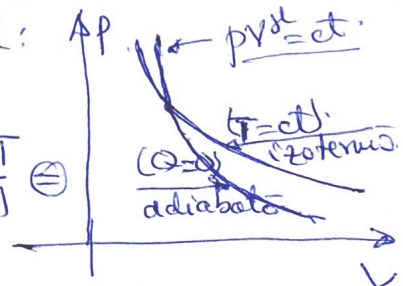 P
pV^γ = ct.
(T=ct)
izotermă
(Q=0)
adiabată
V